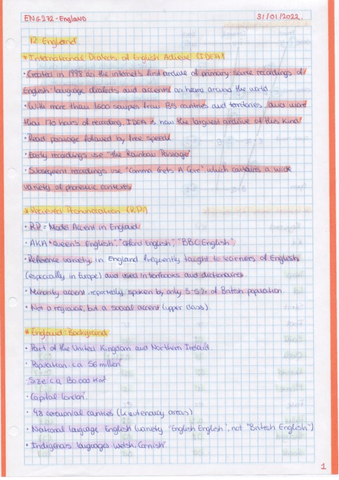 ENG 272 - England 31/01/2022
12. England
* International Dialects of English Archive (IDEA)
• Created in 1998 as the internet's first archive of primary source recordings of
English-language dialects and accents as heard around the world
• With more than 1600 samples from 135 countries and territories, and more
than 170 hours of recording, IDEA is now the largest archive of this kind
• Read passage followed by free speech
• Early recordings use "the Rainbow Passage"
• Subsequent recordings use "Comma Gets A Cure" which contains a wide
variety of phonemic contexts
* Received Pronunciation (RP)
• RP = Model Accent in England
• AKA "Queen's English", "Oxford English", "BBC English"
• Reference variety in England frequently taught to learners of English
(especially in Europe) and used in textbooks and dictionaries
• Minority accent reportedly spoken by only 3-5% of British population
• Not a regional, but a social accent (upper class)
* England: Background
• Part of the United Kingdom and Northern Ireland
• Population: c.a. 56 million
• Size: c.a. 130.000 km²
• Capital: London
• 48 ceremonial counties
• National language: English (variety "English English", not "British English")
• Indigenous languages: Cornish
1